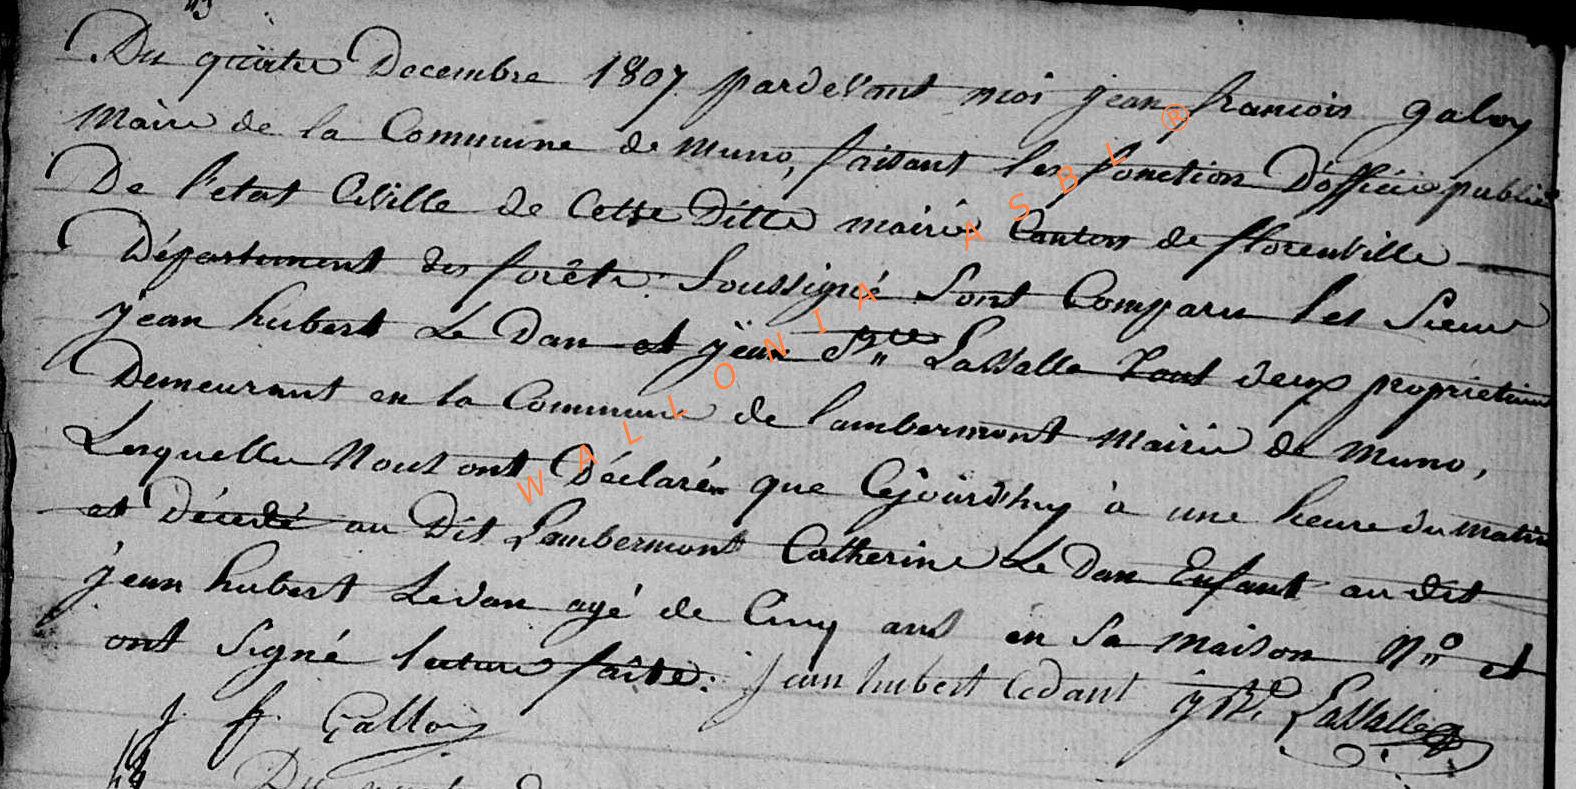 43
Du quatre Decembre 1807 pardevant moi jean francois galoy
Maire de la Commune de Muno, faisant les fonction D'officié publié
De l'etat Civille de Cette Ditte mairie Canton de florenville
Département des forêts Soussigné Sont Comparu les Sieur
jean hubert Le Dan et jean Bte LaValle Tout deux proprietaire
Demeurant en la Commune de lambermont Mairie de Muno,
Lesquelle Nout ont Déclaré que Cejourdhuy à une heure du matin
et Décédé au Dit Lambermont Catherine Le Dan Enfant au dit
jean hubert Ledan agé de Cinq ans en Sa maison No et
ont Signé lecture faite. jean hubert Ledant j Bte LaValle
j. f. Galloy
44 Du
WALLONIA ASBL ®